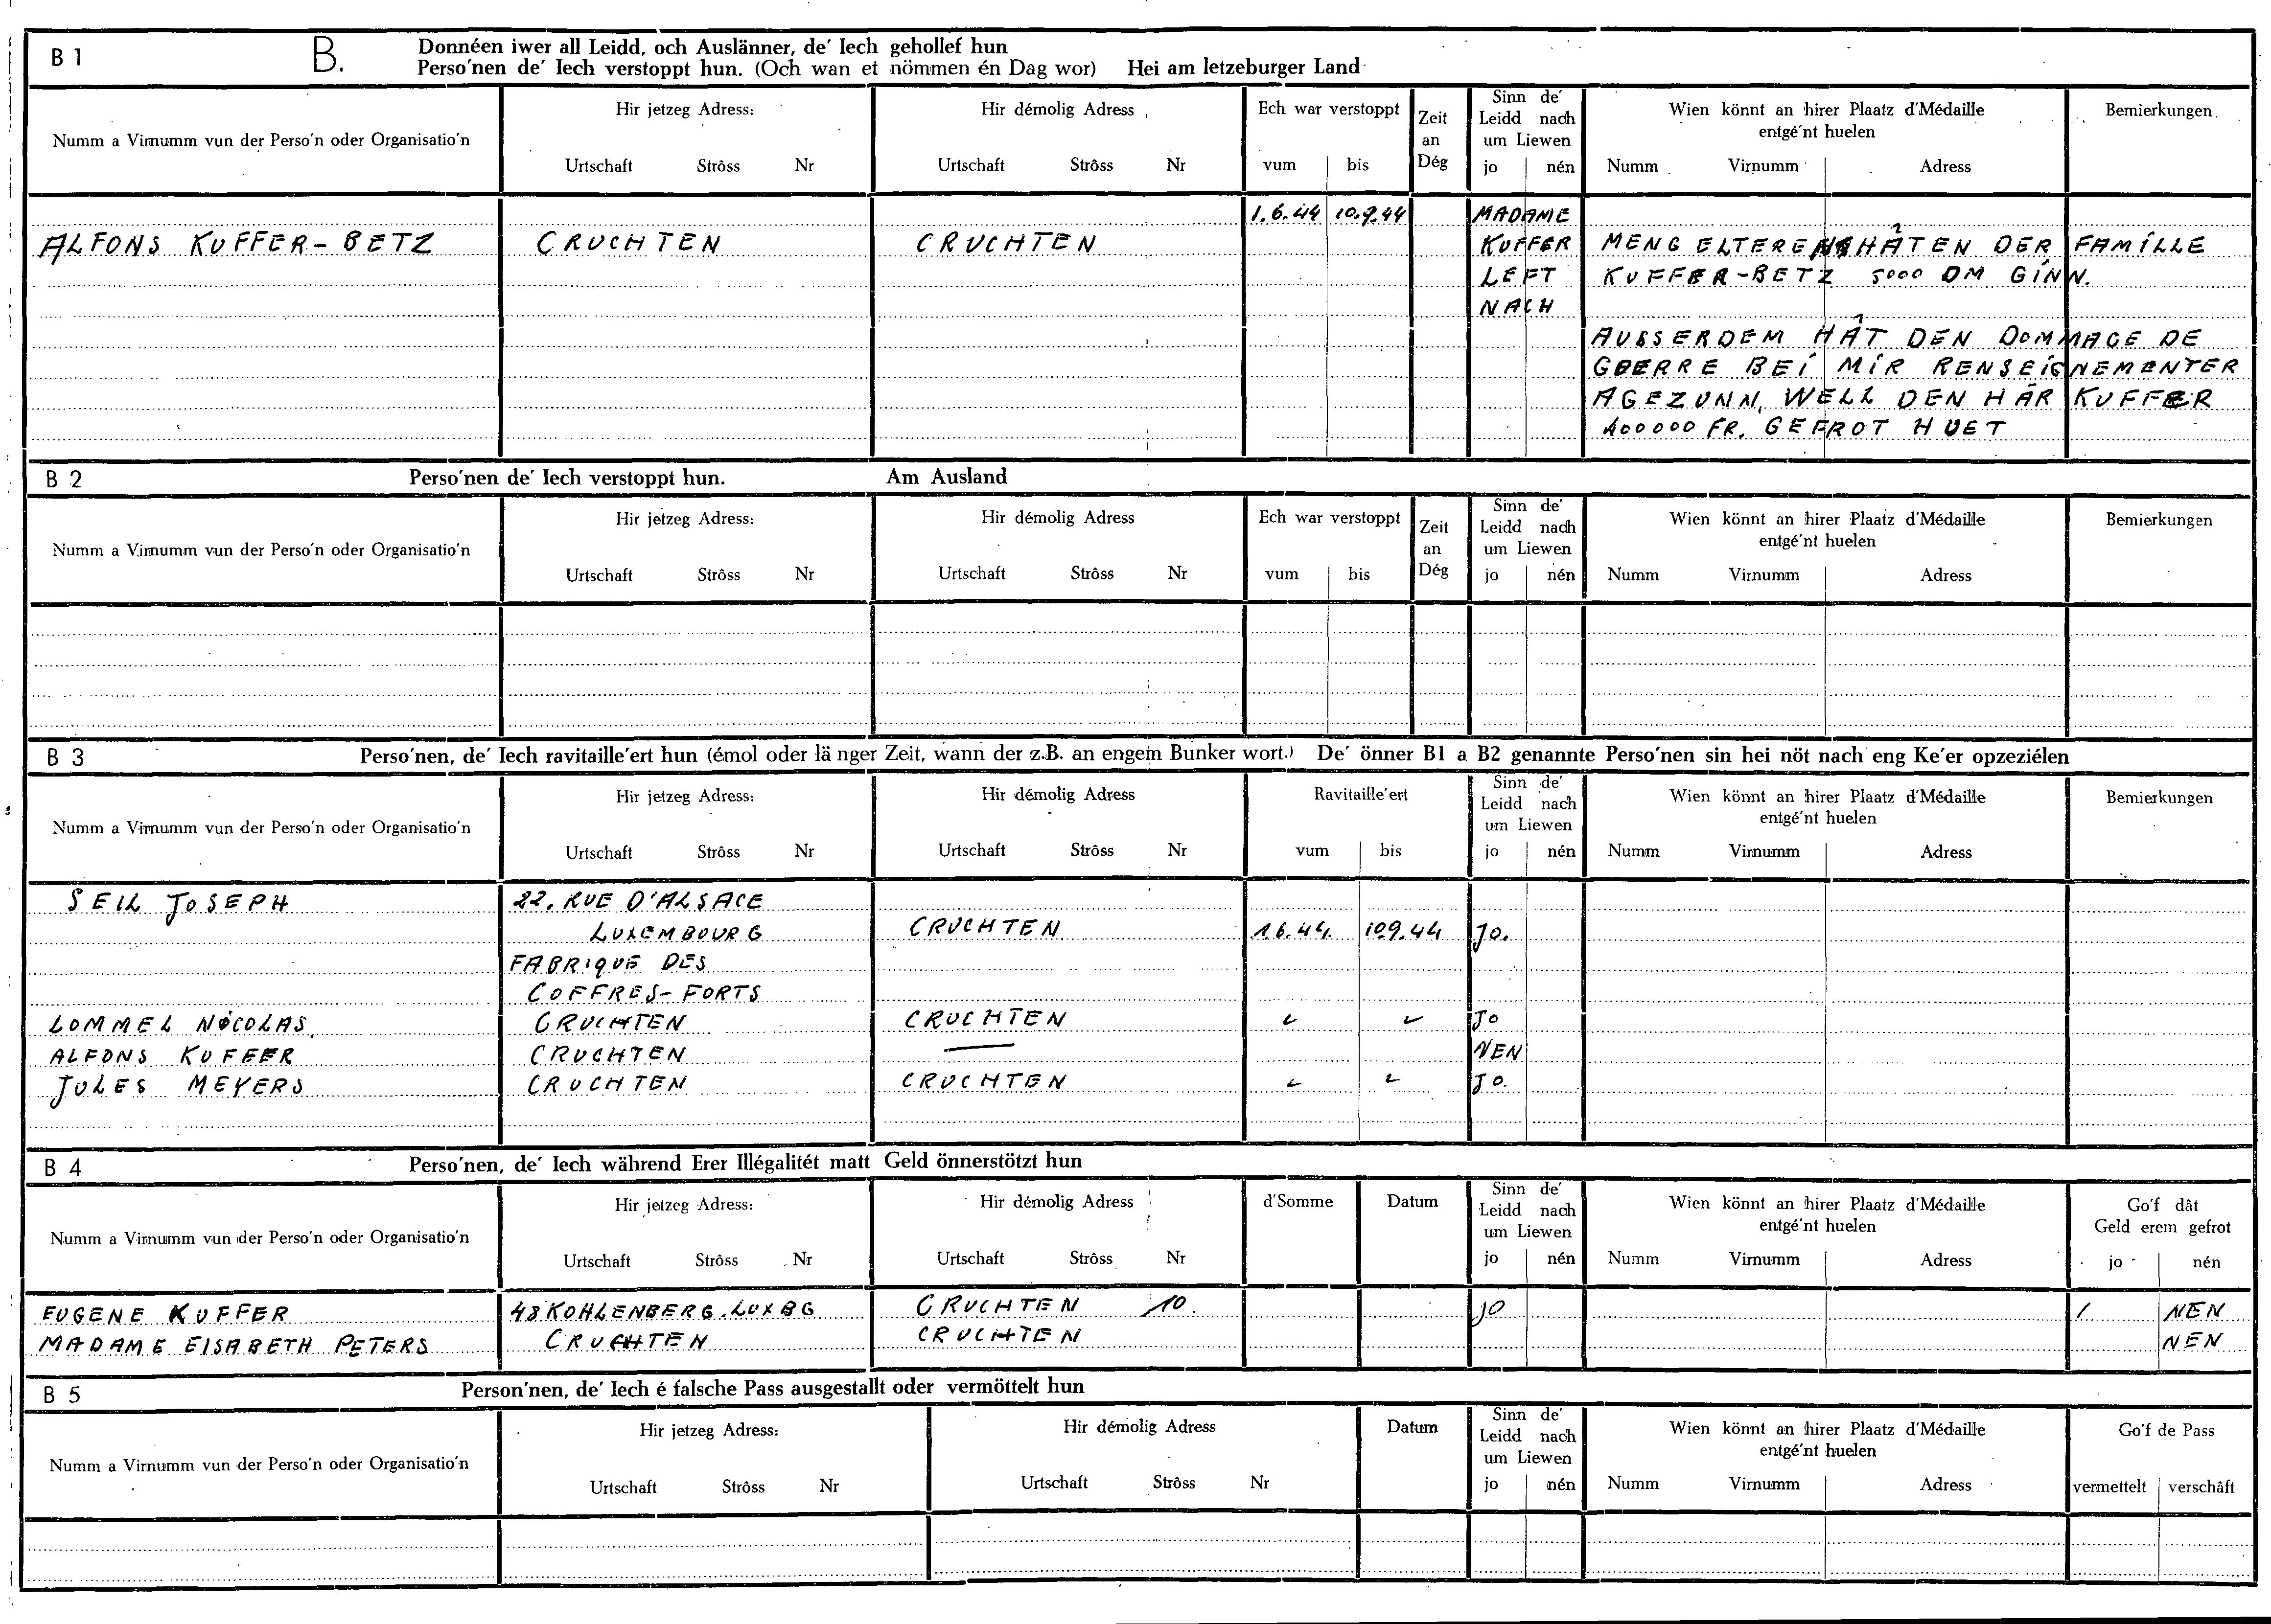 B 1
B.
Donnéen iwer all Leidd, och Auslänner, de' Iech gehollef hun
Perso'nen de' Iech verstoppt hun. (Och wan et nömmen én Dag wor) Hei am letzeburger Land
Numm a Virnumm vun der Perso'n oder Organisatio'n
Hir jetzeg Adress:
Urtschaft Strôss Nr
Hir démolig Adress
Urtschaft Strôss Nr
Ech war verstoppt
vum bis
Zeit
an
Dég
Sinn de'
Leidd nach
um Liewen
jo nén
Wien könnt an hirer Plaatz d'Médaille
entgé'nt huelen
Numm Virnumm Adress
Bemierkungen
1.6.44 10.9.44 MADAME
ALFONS KUFFER-BETZ CRUCHTEN CRUCHTEN KUFFER MENG ELTEREN HÂTEN DER FAMILLE
LEFT KUFFER-BETZ 5000 DM GINN.
NACH
AUSSERDEM HÂT DEN DOMMAGE DE
GUERRE BEI MIR RENSEIGNEMENTER
AGEZUNN, WELL DEN HÄR KUFFER
400000 FR. GEFROT HUET
B 2
Perso'nen de' Iech verstoppt hun. Am Ausland
Numm a Virnumm vun der Perso'n oder Organisatio'n
Hir jetzeg Adress:
Urtschaft Strôss Nr
Hir démolig Adress
Urtschaft Strôss Nr
Ech war verstoppt
vum bis
Zeit
an
Dég
Sinn de'
Leidd nach
um Liewen
jo nén
Wien könnt an hirer Plaatz d'Médaille
entgé'nt huelen
Numm Virnumm Adress
Bemierkungen
B 3
Perso'nen, de' Iech ravitaille'ert hun (émol oder länger Zeit, wann der z.B. an engem Bunker wort.) De' önner B1 a B2 genannte Perso'nen sin hei nöt nach eng Ke'er opzeziélen
Numm a Virnumm vun der Perso'n oder Organisatio'n
Hir jetzeg Adress:
Urtschaft Strôss Nr
Hir démolig Adress
Urtschaft Strôss Nr
Ravitaille'ert
vum bis
Sinn de'
Leidd nach
um Liewen
jo nén
Wien könnt an hirer Plaatz d'Médaille
entgé'nt huelen
Numm Virnumm Adress
Bemierkungen
SEIL JOSEPH 22. RUE D'ALSACE
LUXEMBOURG CRUCHTEN 1.6.44. 10.9.44 JO.
FABRIQUE DES
COFFRES-FORTS
LOMMEL NICOLAS. CRUCHTEN CRUCHTEN JO
ALFONS KUFFER CRUCHTEN — NEN
JULES MEYERS CRUCHTEN CRUCHTEN JO.
B 4
Perso'nen, de' Iech während Erer Illégalitét matt Geld önnerstötzt hun
Numm a Virnumm vun der Perso'n oder Organisatio'n
Hir jetzeg Adress:
Urtschaft Strôss Nr
Hir démolig Adress
Urtschaft Strôss Nr
d'Somme
Datum
Sinn de'
Leidd nach
um Liewen
jo nén
Wien könnt an hirer Plaatz d'Médaille
entgé'nt huelen
Numm Virnumm Adress
Go'f dât
Geld erem gefrot
jo nén
EUGENE KUFFER 48 KOHLENBERG. LUXBG CRUCHTEN 10. JO / NEN
MADAME ElSABETH PETERS CRUCHTEN CRUCHTEN NEN
B 5
Person'nen, de' Iech é falsche Pass ausgestallt oder vermöttelt hun
Numm a Virnumm vun der Perso'n oder Organisatio'n
Hir jetzeg Adress:
Urtschaft Strôss Nr
Hir démolig Adress
Urtschaft Strôss Nr
Datum
Sinn de'
Leidd nach
um Liewen
jo nén
Wien könnt an hirer Plaatz d'Médaille
entgé'nt huelen
Numm Virnumm Adress
Go'f de Pass
vermettelt verschâft